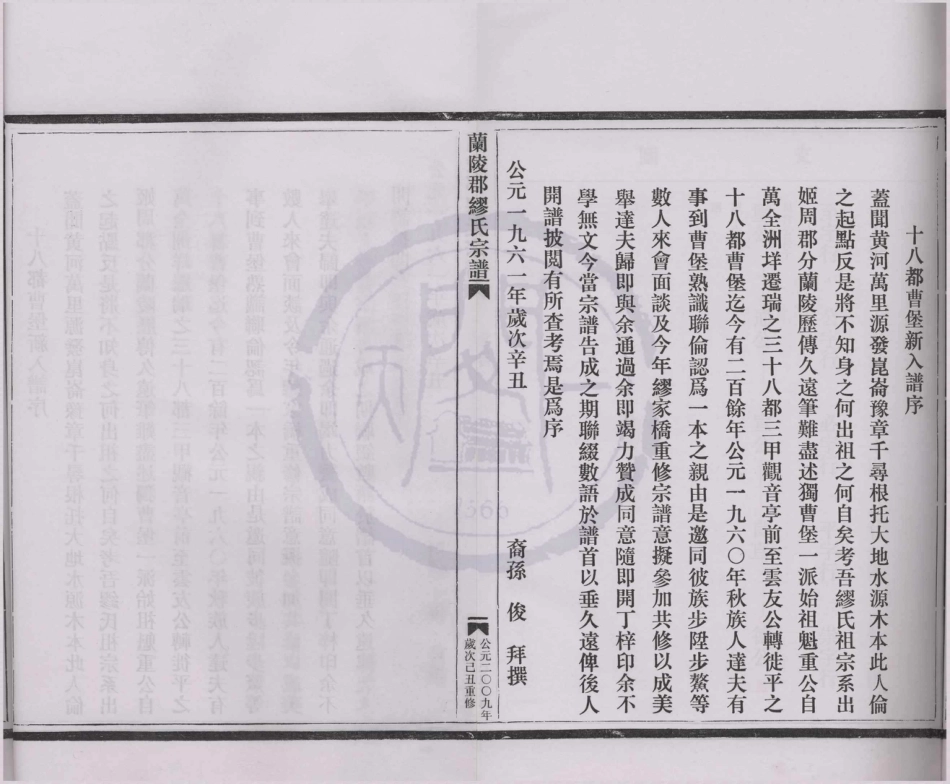 十八都曹堡新入譜序
蓋聞黃河萬里源發崑崙豫章千尋根托大地水源木本此人倫
之起點反是將不知身之何出祖之何自矣考吾繆氏祖宗系出
姬周郡分蘭陵歷傳久遠筆難盡述獨曹堡一派始祖魁重公自
萬全洲垟遷瑞之三十八都三甲觀音亭前至雲友公轉徙平之
十八都曹堡迄今有二百餘年公元一九六〇年秋族人達夫有
事到曹堡熟識聯倫認爲一本之親由是邀同彼族步陞步鰲等
數人來會面談及今年繆家橋重修宗譜意擬參加共修以成美
舉達夫歸即與余通過余即竭力贊成同意隨即開丁梓印余不
學無文今當宗譜告成之期聯綴數語於譜首以垂久遠俾後人
開譜披閱有所查考焉是爲序
公元一九六一年歲次辛丑
裔孫 俊 拜撰
蘭陵郡繆氏宗譜
一
公元二〇〇九年
歲次己丑重修